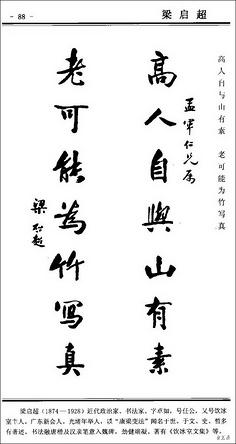 - 88 -
梁启超
高人自与山有素　老可能为竹写真
孟军仁兄属
高人自與山有素
老可能為竹寫真
梁启超
梁启超（1874—1928）近代政治家、书法家，字卓如，号任公，又号饮冰
室主人。广东新会人，光绪年举人，以“康梁变法”闻名于世，于文、史、哲多
有著述。书法融唐楷及汉隶笔意入魏碑，劲健端凝，著有《饮冰室文集》等。